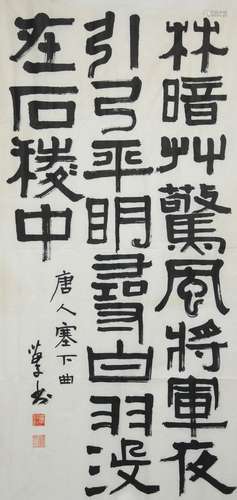 林暗艸驚風將軍夜
引弓平明尋白羽没
在石稜中
唐人塞下曲